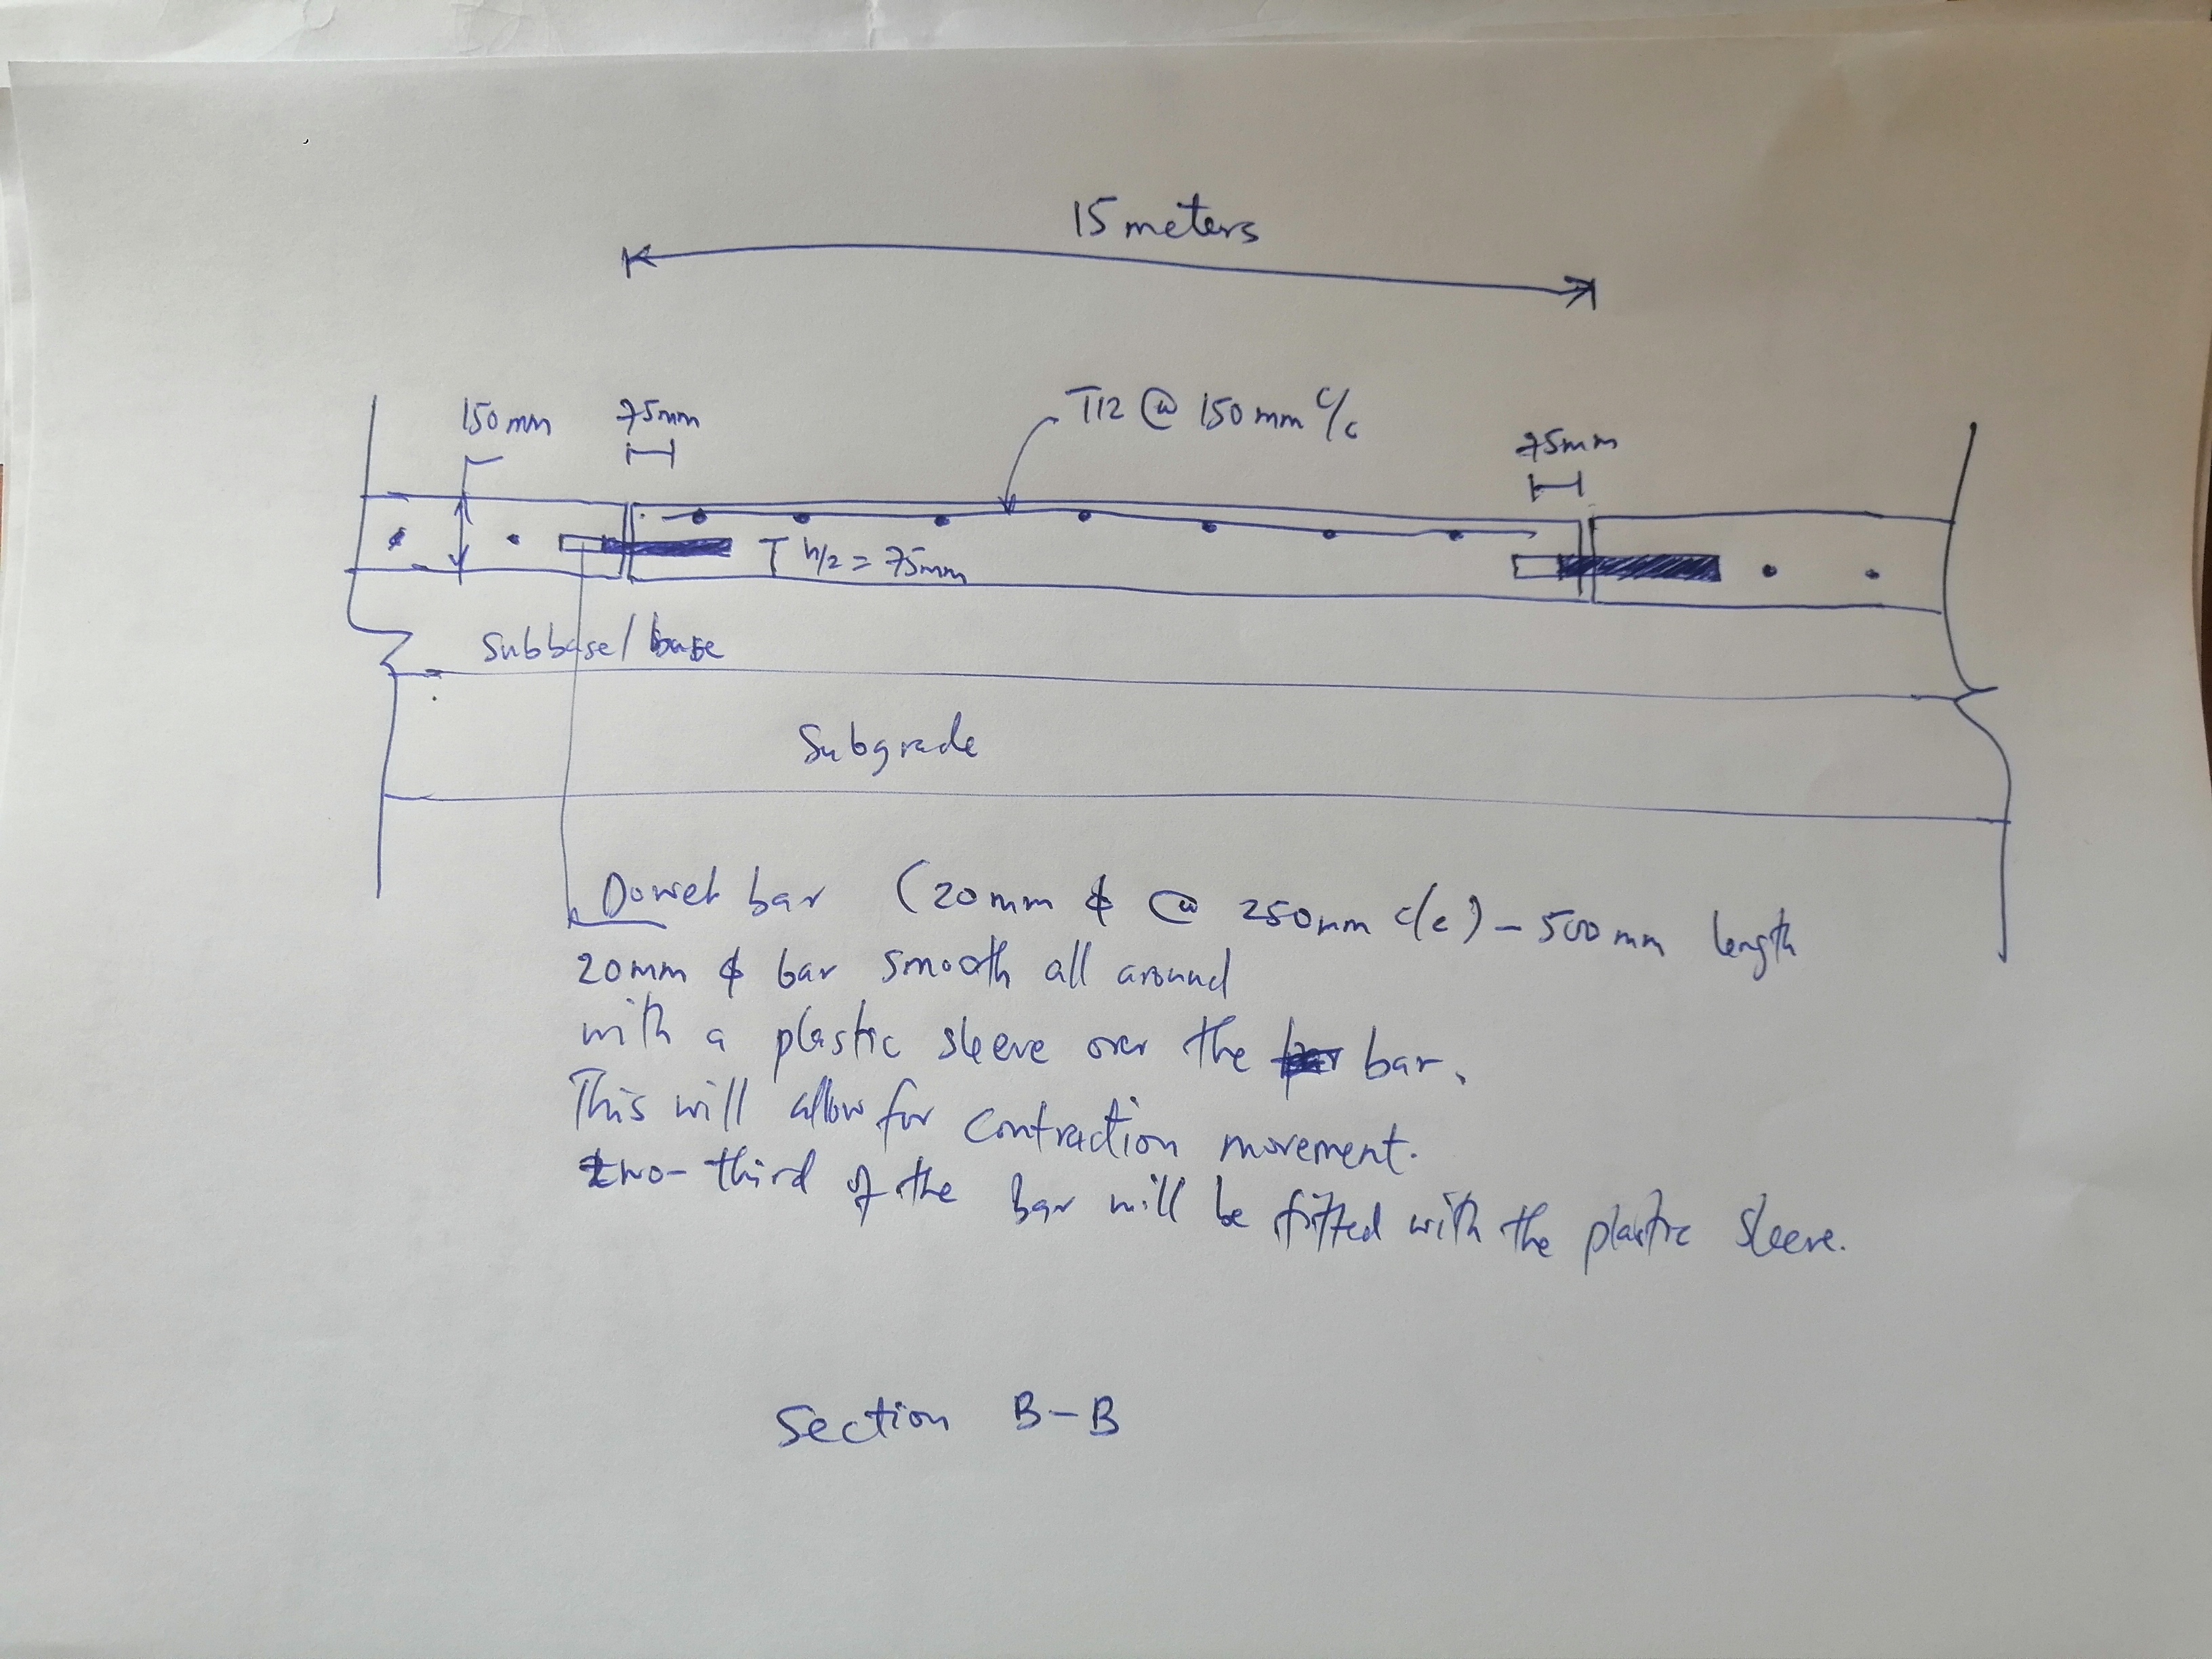 15 meters
150mm
75mm
T12 @ 150mm c/c
75mm
T h/2 = 75mm
Subbase/base
Subgrade
Dowel bar (20mm ϕ @ 250mm c/c) - 500mm length
20mm ϕ bar smooth all around
with a plastic sleeve over the bar.
This will allow for contraction movement.
two-third of the bar will be fitted with the plastic sleeve.
Section B-B